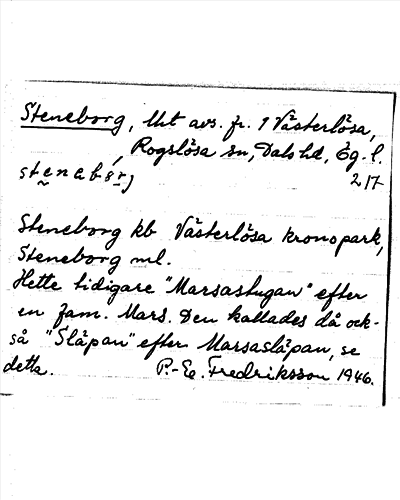 Steneborg, lht avs. fr. 1 Västerlösa,
Rogslösa sn, Dals hd, Ög. l.
2 17
Steneborg kb Västerlösa kronopark,
Steneborg ml.
Hette tidigare "Marsastugan" efter
en fam. Mars. Den kallades då ock-
så "Släpan" efter Marsasläpan, se
detta. P.-E. Fredriksson 1946.